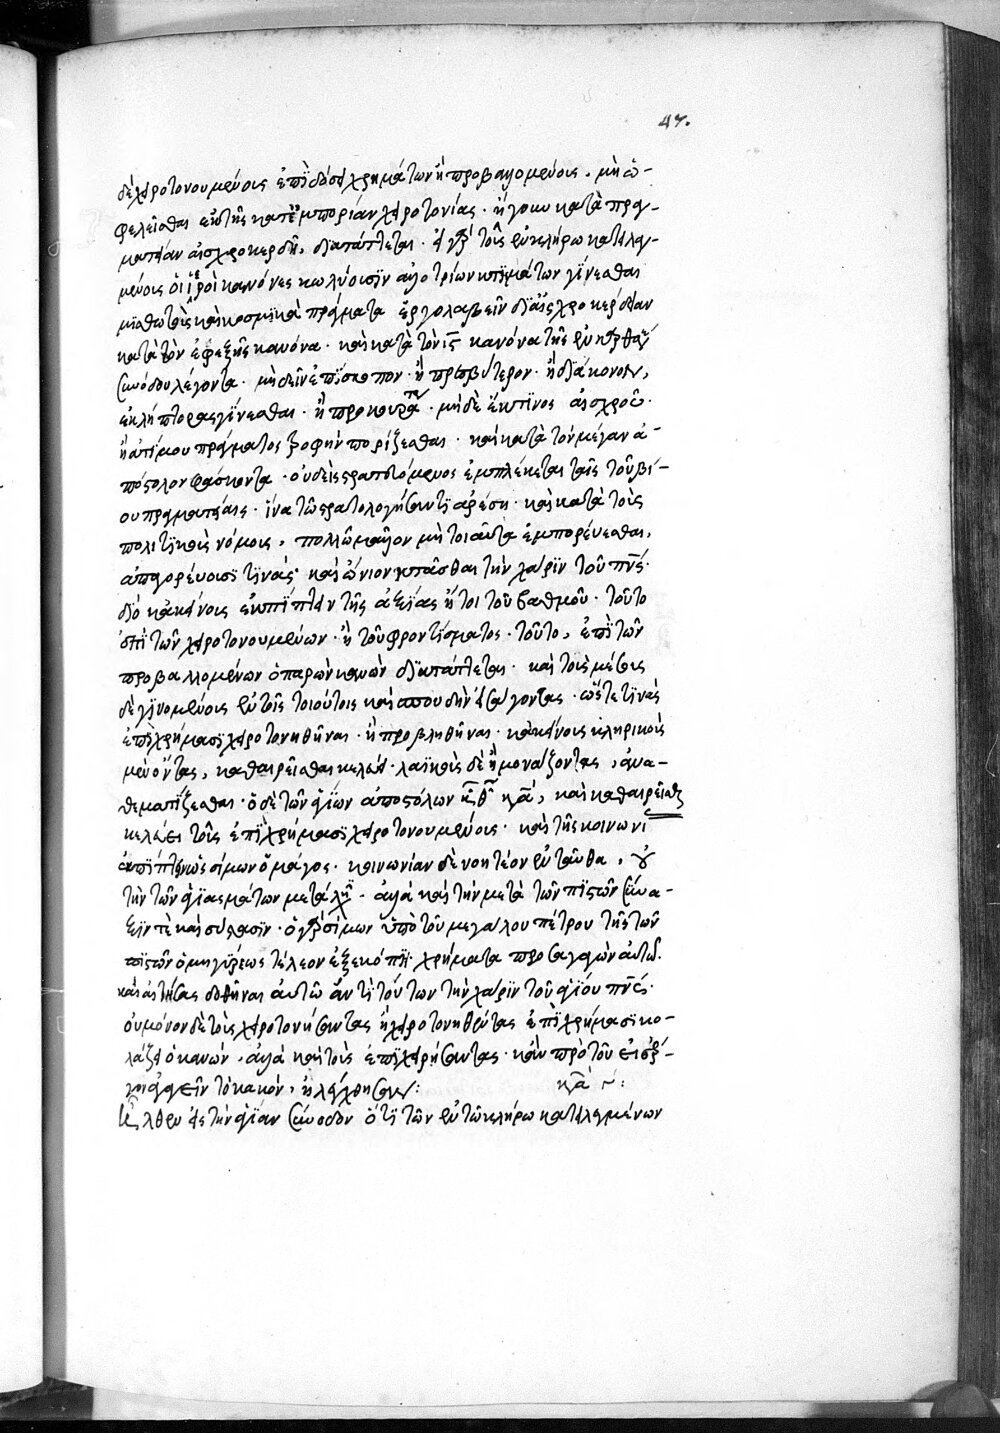 47.
δὲ χειροτονουμένοις ἐπὶ δόσει χρημάτων ἢ προβαλλομένοις. μὴ ὠ-
φελεῖσθαι ἐκ τῆς κατ' ἐμπορίαν χειροτονίας· ἤγουν κατὰ πραγ-
ματείαν αἰσχροκερδῆ, διατάττεται. εἰ γὰρ τοῖς ἐν κλήρω κατειλεγ-
μένοις οἱ ἱεροὶ κανόνες κωλύουσιν ἀλλοτρίων κτημάτων γίνεσθαι
μισθωτὰς καὶ κοσμικὰ πράγματα ἐργολαβεῖν δι' αἰσχροκέρδειαν
κατὰ τὸν ἐφεξῆς κανόνα. καὶ κατὰ τὸν ις κανόνα τῆς ἐν καρθαγ
συνόδου λέγοντα. μὴ δεῖν ἐπίσκοπον. ἢ πρεσβύτερον. ἢ διάκονον,
ἐκλήπτορας γίνεσθαι. ἢ προκουράτ. μὴ δὲ ἔκ τινος αἰσχροῦ.
ἢ ἀτίμου πράγματος τροφὴν πορίζεσθαι. καὶ κατὰ τὸν μέγαν ἀ-
πόστολον φάσκοντα. οὐδεὶς στρατευόμενος ἐμπλέκεται ταῖς τοῦ βί-
ου πραγματείαις. ἵνα τῶ στρατολογήσαντι ἀρέση. καὶ κατὰ τοὺς
πολιτικοὺς νόμους, πολλῶ μᾶλλον μὴ τοιαῦτα ἐμπορεύεσθαι,
ἀπαγορεύουσί τινας καὶ ὤνιον κτᾶσθαι τὴν χάριν τοῦ πνς.
διὸ κἀκείνοις ἐκπίπτειν τῆς ἀξίας ἤτοι τοῦ βαθμοῦ. τοῦτο
ἐπὶ τῶν χειροτονουμένων. ἢ τοῦ φροντίσματος. τοῦτο, ἐπὶ τῶν
προβαλλομένων ὁ παρὼν κανὼν διατάττεται. καὶ τοὺς μέσους
δὲ γινομένους ἐν τοῖς τοιούτοις καὶ σπουδὴν εἰσάγοντας. ὥστε τινὰς
ἐπὶ χρήμασι χειροτονηθῆναι. ἢ προβληθῆναι. κἀκείνους κληρικοὺς
μὲν ὄντας, καθαιρεῖσθαι κελεύει. λαϊκοὺς δὲ ἢ μονάζοντας, ἀνα-
θεματίζεσθαι. ὁ δὲ τῶν ἁγίων ἀποστόλων κθ κα, καὶ καθαιρεῖσθαι
κελεύει τοὺς ἐπὶ χρήμασι χειροτονουμένους. καὶ τῆς κοινωνί
ἐκπίπτειν ὡς σίμων ὁ μάγος. κοινωνίαν δὲ νοητέον ἐνταῦθα, οὐ
τὴν τῶν ἁγιασμάτων μετάλη. ἀλλὰ καὶ τὴν μετὰ τῶν πιστῶν σύνα-
ξιν τὲ καὶ σύστασιν. ὁ γὰρ σίμων ὑπὸ τοῦ μεγάλου πέτρου τῆς τῶν
πιστῶν ὁμηγύρεως τέλεον ἐξεκόπη χρήματα προσαγαγὼν αὐτῶ.
καὶ αἰτήσας δοθῆναι αὐτῶ ἀντὶ τούτων τὴν χάριν τοῦ ἁγίου πνς.
οὐ μόνον δὲ τοὺς χειροτονήσαντας ἢ χειροτονηθέντας ἐπὶ χρήμασι κο-
λάζει ὁ κανών. ἀλλὰ καὶ τοὺς ἐπιχειρήσαντας. κἂν πρὸ τοῦ εἰς ἔρ-
γον ἀγαγεῖν τὸ κακόν, ἠλέγχθησαν: κα γ:
Ἦλθεν εἰς τὴν ἁγίαν σύνοδον ὅτι τῶν ἐν τῶ κλήρω κατειλεγμένων